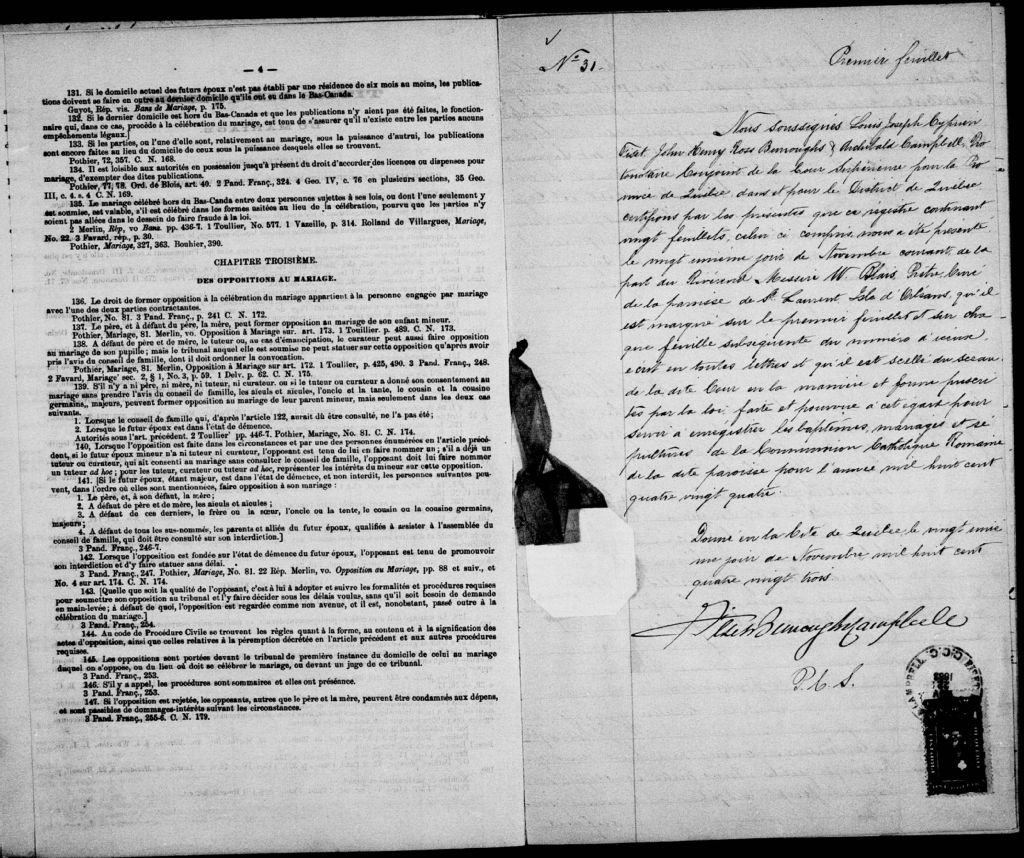 — 4 —
131. Si le domicile actuel des futurs époux n'est pas établi par une résidence de six mois au moins, les publica-
tions doivent se faire en outre au dernier domicile qu'ils ont eu dans le Bas-Canada.
Guyot, Rép. vis. Bans de Mariage, p. 175.
132. Si le dernier domicile est hors du Bas-Canada et que les publications n'y aient pas été faites, le fonction-
naire qui, dans ce cas, procède à la célébration du mariage, est tenu de s'assurer qu'il n'existe entre les parties aucuns
empêchements légaux.]
133. Si les parties, ou l'une d'elles sont, relativement au mariage, sous la puissance d'autrui, les publications
sont encore faites au lieu du domicile de ceux sous la puissance desquels elles se trouvent.
Pothier, 72, 357. C. N. 168.
134. Il est loisible aux autorités en possession jusqu'à présent du droit d'accorder des licences ou dispenses pour
mariage, d'exempter des dites publications.
Pothier, 77, 78. Ord. de Blois, art. 40. 2 Pand. Franç., 324. 4 Geo. IV, c. 76 en plusieurs sections, 35 Geo.
III, c. 4. s. 4 C. N. 169.
135. Le mariage célébré hors du Bas-Canda entre deux personnes sujettes à ses lois, ou dont l'une seulement y
est soumise, est valable, s'il est célébré dans les formes usitées au lieu de la célébration, pourvu que les parties n'y
soient pas allées dans le dessein de faire fraude à la loi.
2 Merlin, Rép, vo Bans. pp. 436-7. 1 Toullier, No. 577. 1 Vazeille, p. 314. Rolland de Villargues, Mariage,
No. 22. 3 Favard, rép., p. 30.
Pothier, Mariage, 327, 363. Bouhier, 390.
CHAPITRE TROISIÈME.
DES OPPOSITIONS AU MARIAGE.
136. Le droit de former opposition à la célébration du mariage appartient à la personne engagée par mariage
avec l'une des deux parties contractantes.
Pothier, No. 81. 3 Pand. Franç., p. 241 C. N. 172.
137. Le père, et à défaut du père, la mère, peut former opposition au mariage de son enfant mineur.
Pothier, Mariage, 81. Merlin, vo. Opposition à Mariage sur. art. 173. 1 Touillier. p. 489. C. N. 173.
138. A défaut de père et de mère, le tuteur ou, au cas d'émancipation, le curateur peut aussi faire opposition
au mariage de son pupille; mais le tribunal auquel elle est soumise ne peut statuer sur cette opposition qu'après avoir
pris l'avis du conseil de famille, dont il doit ordonner la convocation.
Pothier, Mariage, 81. Merlin, Opposition à Mariage sur art. 172. 1 Toulier, p. 425, 490. 3 Pand. Franç., 248.
2 Favard, Mariage' sec. 2, § 1, No. 3, p. 59. 1 Delv. p. 62. C. N. 175.
139. S'il n'y a ni père, ni mère, ni tuteur, ni curateur. ou si le tuteur ou curateur a donné son consentement au
mariage sans prendre l'avis du conseil de famille, les aieuls et aieules, l'oncle et la tante, le cousin et la cousine
germains, majeurs, peuvent former opposition au mariage de leur parent mineur, mais seulement dans les deux cas
suivants.
1. Lorsque le conseil de famille qui, d'après l'article 122, aurait dû être consulté, ne l'a pas été;
2. Lorsque le futur époux est dans l'état de démence.
Autorités sous l'art. précédent. 2 Toullier' pp. 446-7. Pothier, Mariage, No. 81. C. N. 174.
140, Lorsque l'opposition est faite dans les circonstances et par une des personnes énumérées en l'article précé-
dent, si le futur époux mineur n'a ni tuteur ni curateur, l'opposant est tenu de lui en faire nommer un; s'il a déjà un
tuteur ou curateur, qui ait consenti au mariage sans consulter le conseil de famille, l'opposant doit lui faire nommer
un tuteur ad hoc; pour les tuteur, curateur ou tuteur ad hoc, représenter les intérêts du mineur sur cette opposition.
141. [Si le futur époux, étant majeur, est dans l'état de démence, et non interdit, les personnes suivantes peu-
vent, dans l'ordre où elles sont mentionnées, faire opposition à son mariage:
1. Le père, et, à son défaut, la mère;
2. A défaut de père et de mère, les aieuls et aieules;
3. A défaut de ces derniers, le frère ou la sœur, l'oncle ou la tante, le cousin ou la cousine germains,
majeurs;
4. A défaut de tous les sus-nommés, les parents et alliés du futur époux, qualifiés à assister à l'assemblée du
conseil de famille, qui doit être consulté sur son interdiction.]
3 Pand. Franç., 246-7.
142. Lorsque l'opposition est fondée sur l'état de démence du futur époux, l'opposant est tenu de promouvoir
son interdiction et d'y faire statuer sans délai.
3 Pand. Franç., 247. Pothier, Mariage, No. 81. 22 Rép. Merlin, vo. Opposition au Mariage, pp. 88 et suiv., et
No. 4 sur art. 174. C. N. 174.
143. [Quelque que soit la qualité de l'opposant, c'est à lui à adopter et suivre les formalités et procédures requises
pour soumettre son opposition au tribunal et l'y faire décider sous les délais voulus, sans qu'il soit besoin de demande
en main-levée; à défaut de quoi, l'opposition est regardée comme non avenue, et il est, nonobstant, passé outre à la
célébration du mariage.]
3 Pand. Franç., 254.
144. Au code de Procédure Civile se trouvent les règles quant à la forme, au contenu et à la signification des
actes d'opposition, ainsi que celles relatives à la péremption décrétée en l'article précédent et aux autres procédures
requises.
145. Les oppositions sont portées devant le tribunal de première instance du domicile de celui au mariage
duquel on s'oppose, ou du lieu où doit se célébrer le mariage, ou devant un juge de ce tribunal.
3 Pand. Franç., 253.
146. S'il y a appel, les procédures sont sommaires et elles ont préséance.
3 Pand. Franç., 253.
147. Si l'opposition est rejetée, les opposants, autres que le père et la mère, peuvent être condamnés aux dépens,
et sont passibles de dommages-intérêts suivant les circonstances.
3 Pand. Franç., 255-6. C. N. 179.
No 31.
Premier feuillet
Nous soussignés Louis Joseph Cyprien
Fiset, John Henry Ross Burroughs & Archibald Campbell, Pro-
tonotaire Conjoint de la Cour Supérieure pour la Pro-
vince de Québec dans et pour le District de Québec
certifions par les présentes que ce registre contenant
vingt feuillets, celui ci compris, nous a été présenté
le vingt unième jour de Novembre courant, de la
part du Révérend Messire W. Blais Prêtre, Curé
de la paroisse de St. Laurent Isle d'Orléans, qu'il
est marqué sur le premier feuillet et sur cha-
que feuille subséquente du numéro d'icelui,
écrit en toutes lettres et qu'il est scellé du sceau
de la dite Cour en la manière et forme prescri-
tes par la loi faite et pourvue à cet égard pour
servir à enregistrer les baptêmes, mariages et sé-
pultures de la Communion Catholique Romaine
de la dite paroisse pour l'année mil huit cent
quatre vingt quatre.
Donné en la Cité de Québec, le vingt uniè-
me jour de Novembre mil huit cent
quatre vingt trois.
Fiset Burroughs Campbell
P. C. S.